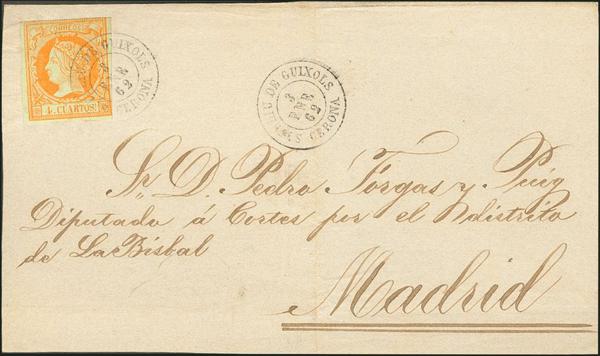 CORREOS
4 CUARTOS
DE GUIXOLS
ENE
62
GERONA
DE GUIXOLS
3
ENE
62
GERONA
Sr. D. Pedro Forgas y Puig
Diputado á Cortes por el distrito
de La Bisbal
Madrid